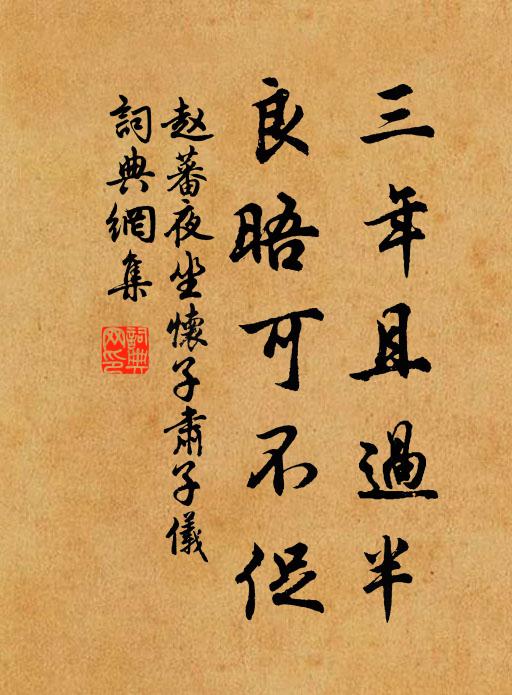 三年且過半
良晤可不促
赵蕃夜坐懷子肅子儀
詞典網集
詞典
网印